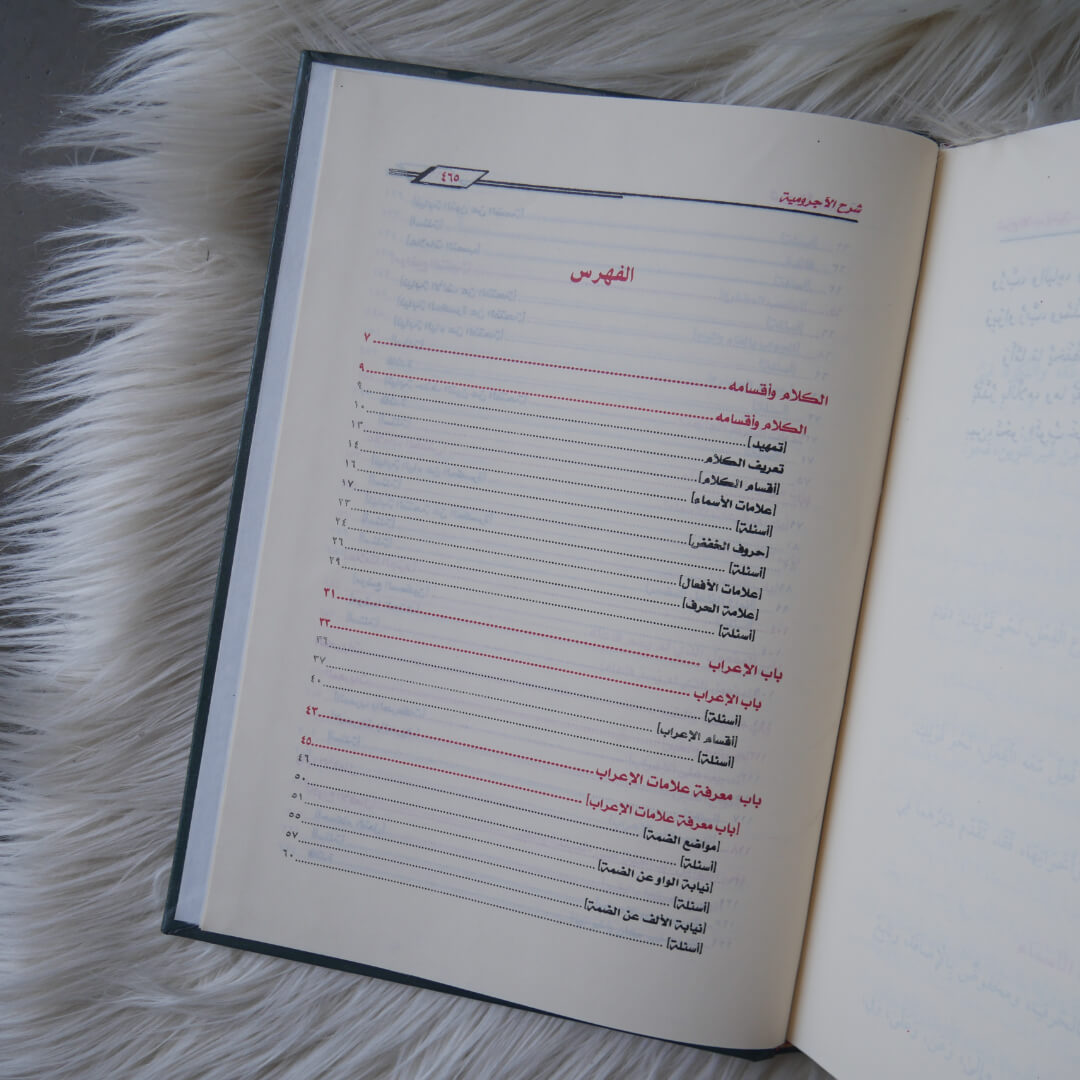 شرح الآجرومية ٤٦٥
الفهرس
الكلام وأقسامه ٧
الكلام وأقسامه ٩
[تمهيد] ٩
تعريف الكلام ١٠
[أقسام الكلام] ١٣
[علامات الأسماء] ١٤
[أسئلة] ١٦
[حروف الخفض] ١٧
[أسئلة] ٢٣
[علامات الأفعال] ٢٤
[علامة الحرف] ٢٦
[أسئلة] ٢٩
باب الإعراب ٣١
باب الإعراب ٣٣
[أسئلة] ٣٦
[أقسام الإعراب] ٣٧
[أسئلة] ٤٠
باب معرفة علامات الإعراب ٤٣
[باب معرفة علامات الإعراب] ٤٥
[مواضع الضمة] ٤٦
[أسئلة] ٥٠
[نيابة الواو عن الضمة] ٥١
[أسئلة] ٥٥
[نيابة الألف عن الضمة] ٥٧
[أسئلة] ٦٠